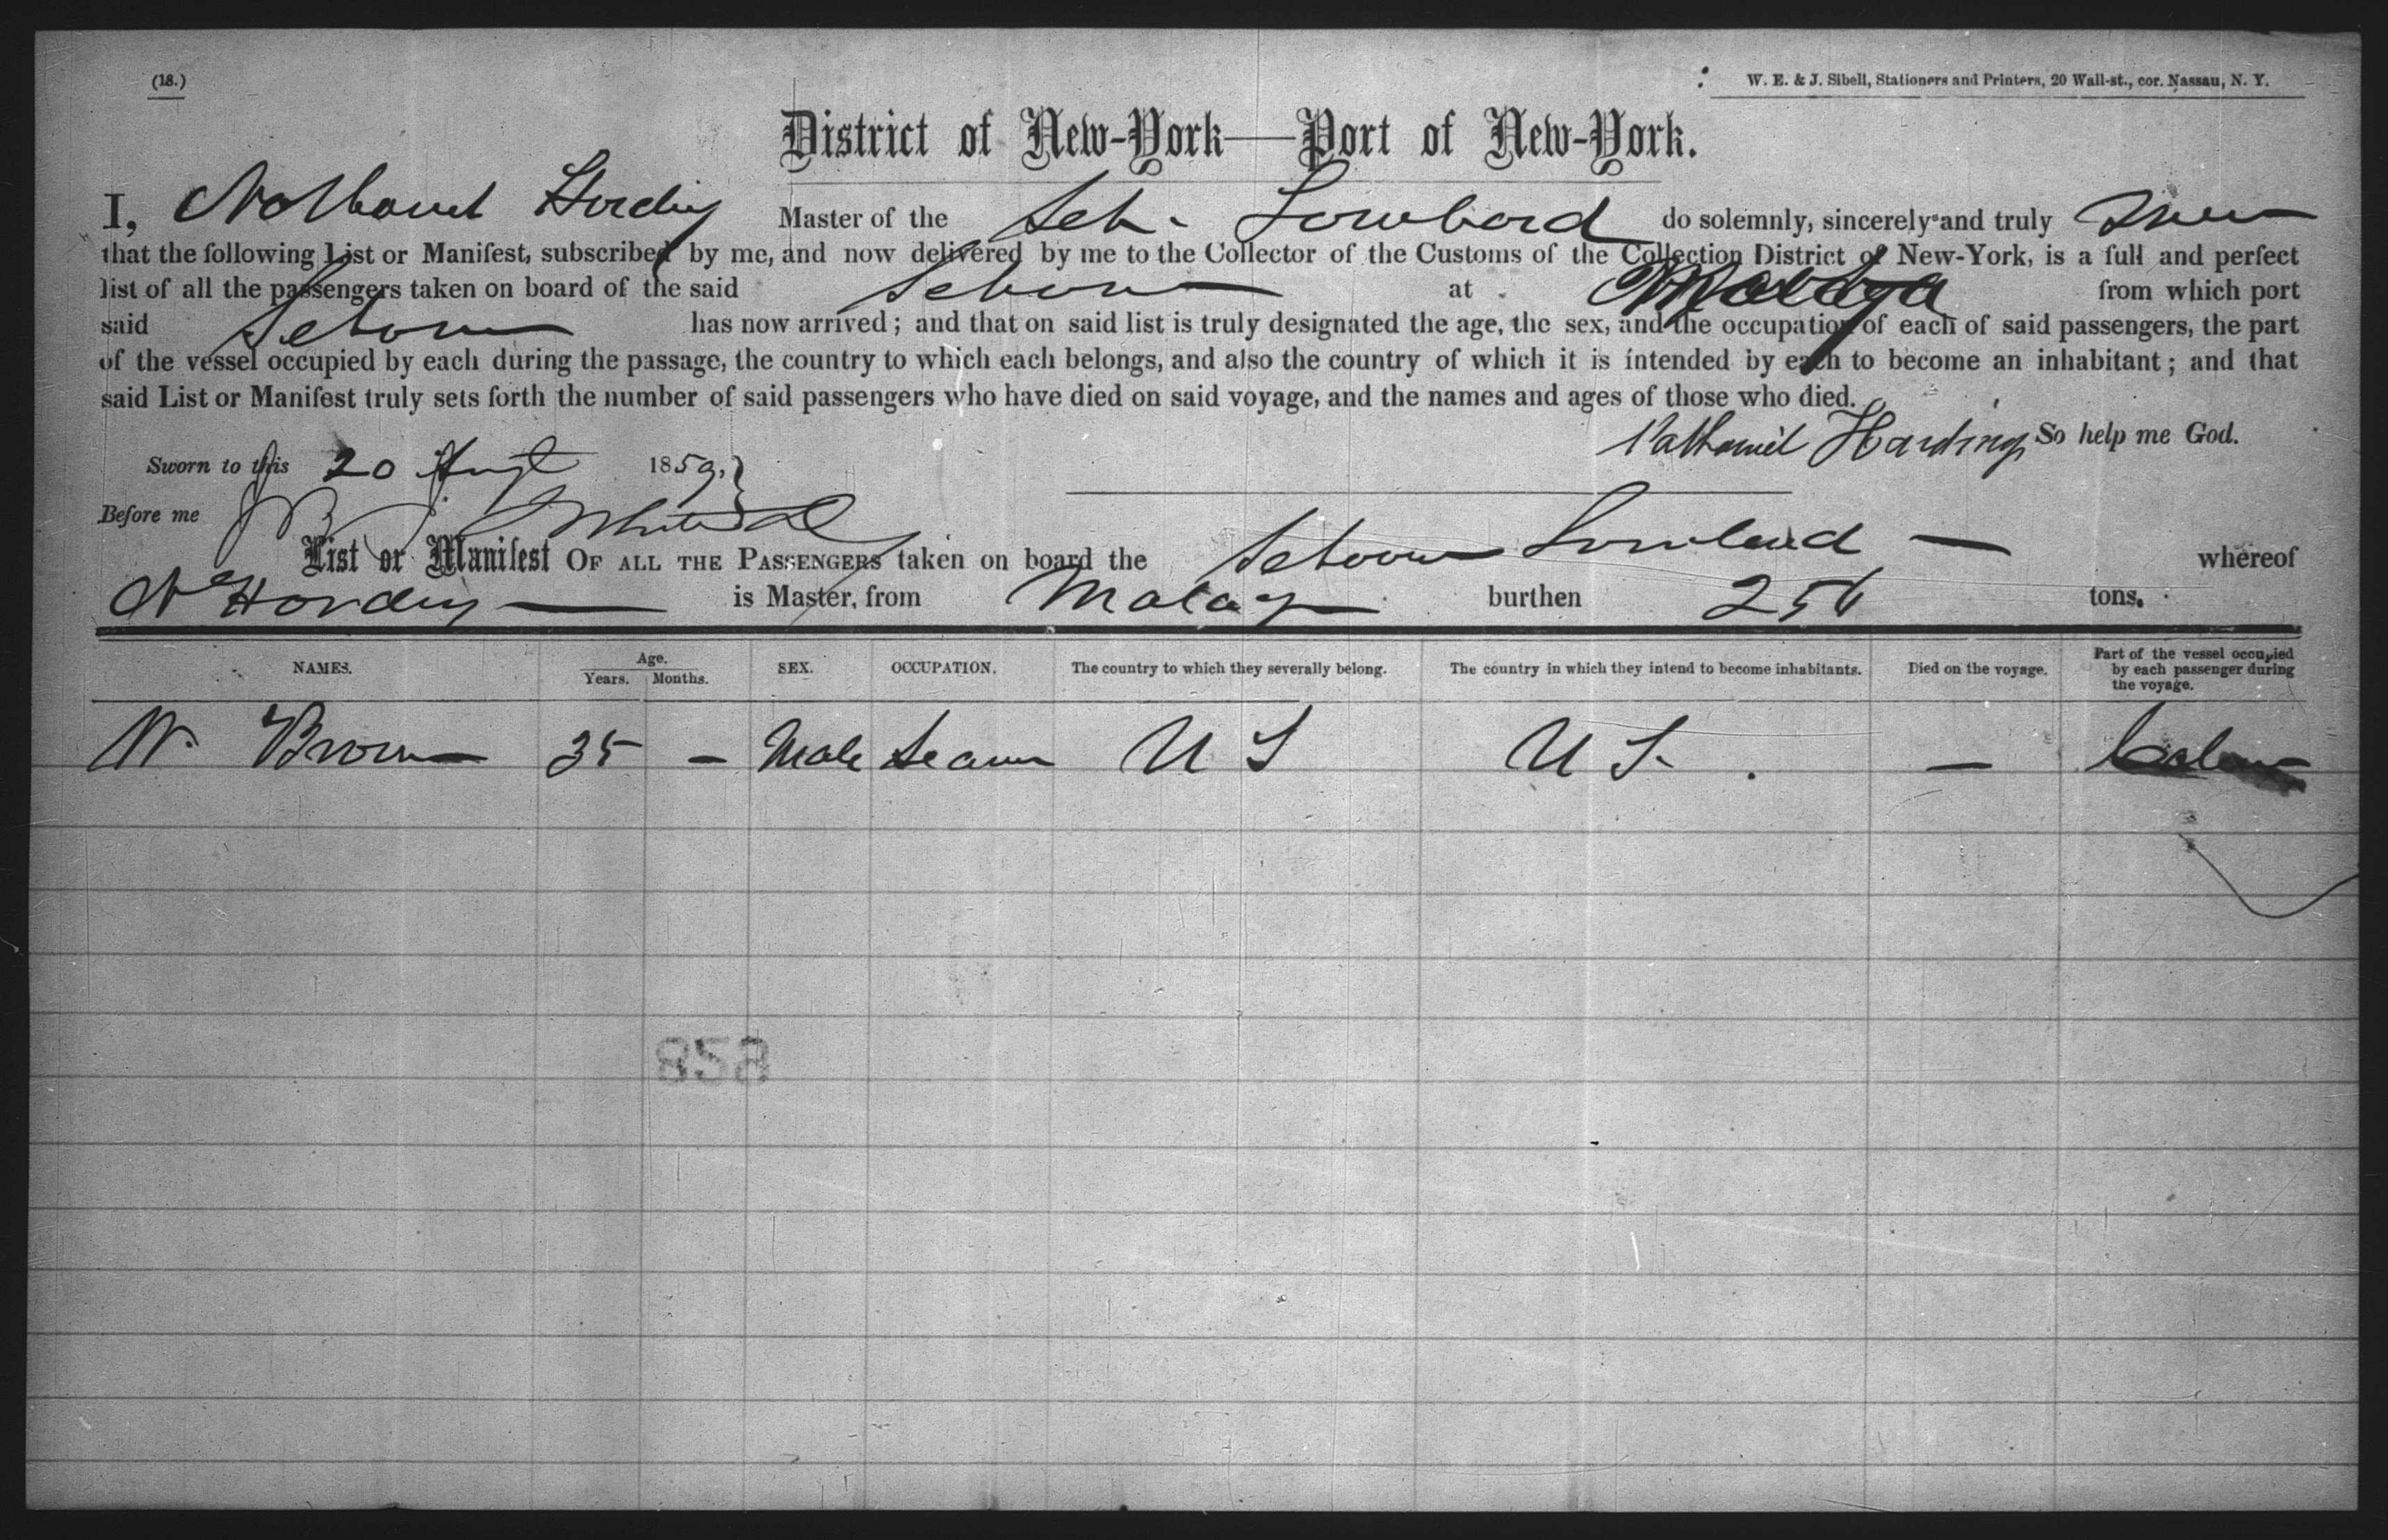 (18.)
W. E. & J. Sibell, Stationers and Printers, 20 Wall-st., cor. Nassau, N. Y.
District of New-York—Port of New-York.
I, Nathaniel Harding Master of the Sch. Lombard do solemnly, sincerely and truly Swear
that the following List or Manifest, subscribed by me, and now delivered by me to the Collector of the Customs of the Collection District of New-York, is a full and perfect
list of all the passengers taken on board of the said Schooner at Malaga from which port
said Schooner has now arrived; and that on said list is truly designated the age, the sex, and the occupation of each of said passengers, the part
of the vessel occupied by each during the passage, the country to which each belongs, and also the country of which it is intended by each to become an inhabitant; and that
said List or Manifest truly sets forth the number of said passengers who have died on said voyage, and the names and ages of those who died.
Nathaniel Harding So help me God.
Sworn to this 20 Augt 1859.
Before me
List or Manifest OF ALL THE PASSENGERS taken on board the Schooner Lombard — whereof
N Harding — is Master, from Malaga burthen tons.
NAMES. Age. Years. Months. SEX. OCCUPATION. The country to which they severally belong. The country in which they intend to become inhabitants. Died on the voyage. Part of the vessel occupied by each passenger during the voyage.
W. Brown 35 — Male Seaman U S U S. —
858